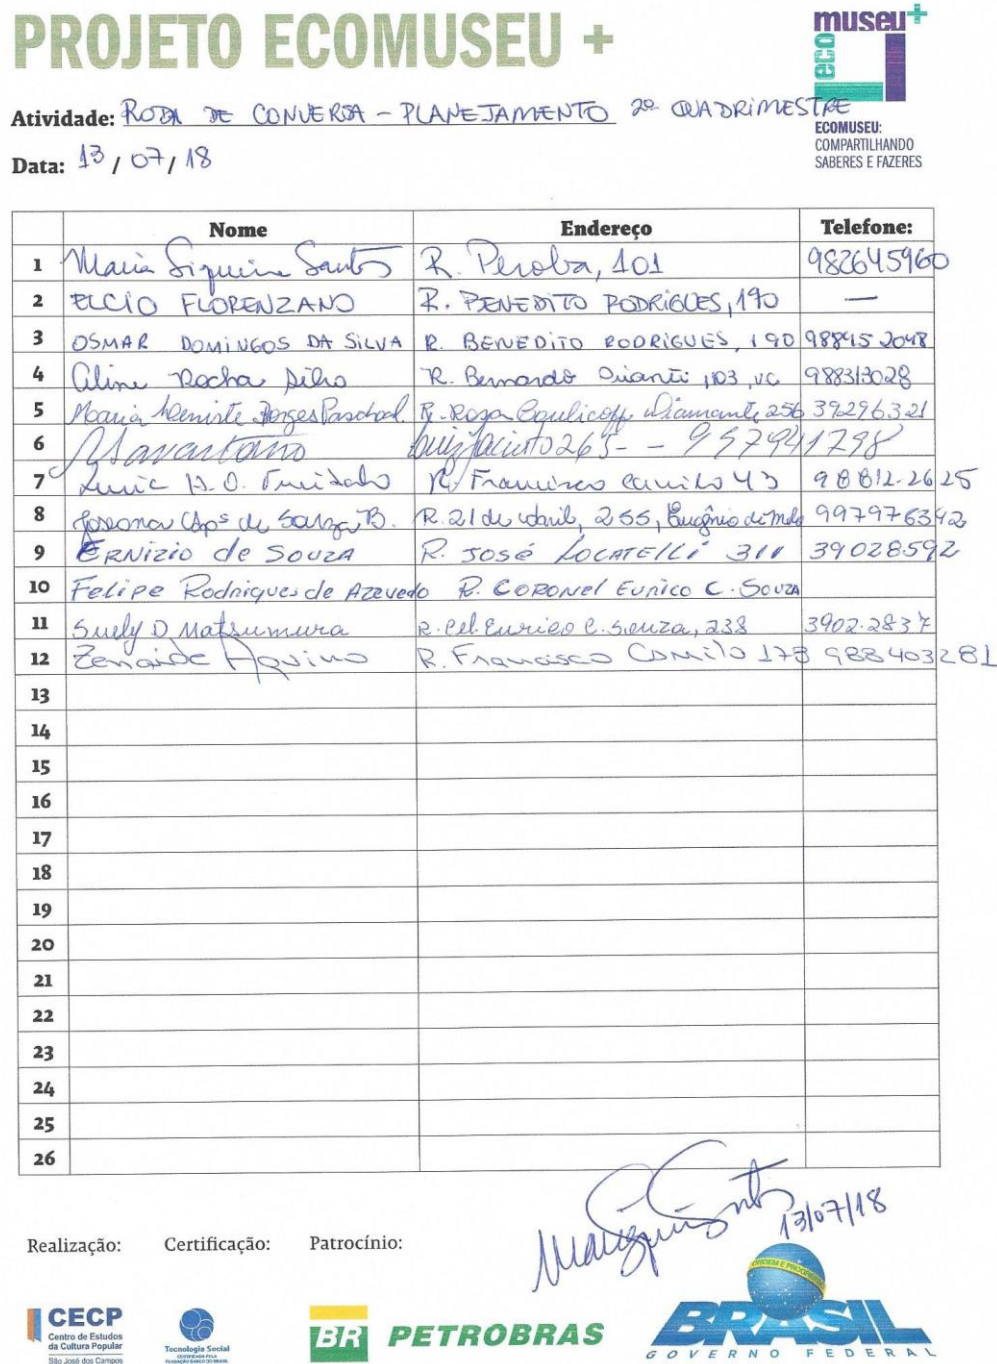 PROJETO ECOMUSEU +
museu+
eco
ECOMUSEU:
COMPARTILHANDO
SABERES E FAZERES
Atividade: RODA DE CONVERSA - PLANEJAMENTO 2º QUADRIMESTRE
Data: 13/07/18
Nome Endereço Telefone:
1 Maria Siqueira Santos R. Peroba, 101 982645960
2 ELCIO FLORENZANO R. BENEDITO RODRIGUES, 190 —
3 OSMAR DOMINGOS DA SILVA R. BENEDITO RODRIGUES, 190 98845 2048
4 Aline Rocha R. Bernardo 103, 988313028
5 Maria Borges Paschoal R. Rosa Diamante 256 39296321
6 Luiz Jacinto 265 - 997941798
7 R. Francisco Camilo 43 98812-2625
8 Aps de Souza B. R. 21 de abril, 255, Eugênio de Melo 997976342
9 ERNIZIO de SOUZA R. JOSÉ LOCATELLI 311 39028592
10 Felipe Rodrigues de Azevedo R. CORONEL EURICO C. SOUZA
11 Suely D Matsumura R. Cel. Eurico C. Souza, 238 3902-2837
12 Zenaide Aquino R. Francisco Camilo 178 988403281
13
14
15
16
17
18
19
20
21
22
23
24
25
26
13/07/18
Realização: Certificação: Patrocínio:
CECP
Centro de Estudos
da Cultura Popular
São José dos Campos
Tecnologia Social
CERTIFICADA PELA
FUNDAÇÃO BANCO DO BRASIL
BR PETROBRAS
ORDEM E PROGRESSO
BRASIL
GOVERNO FEDERAL